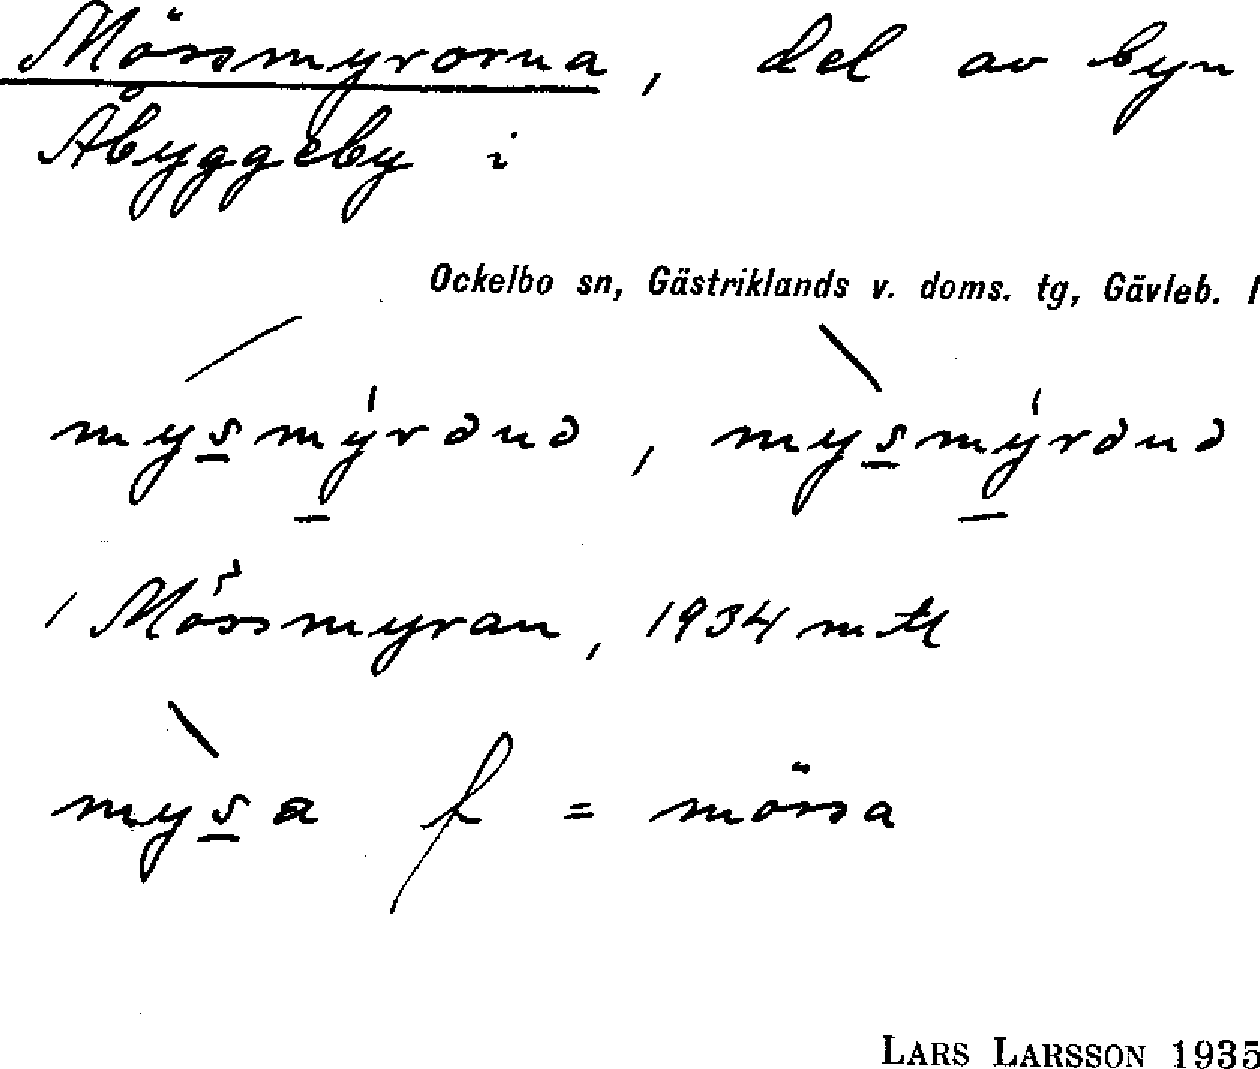 Mössmyrorna, del av byn
Åbyggeby i
Ockelbo sn, Gästriklands v. doms. tg, Gävleb. l
mysmýrənə, mysmýrənə
/ Mössmyran, 1934 mtl
mysa f = mössa
LARS LARSSON 1935